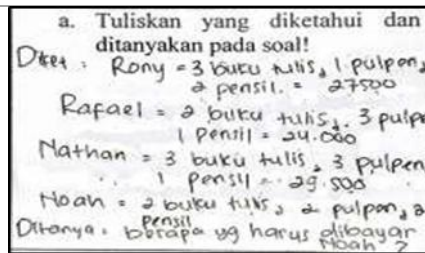 a. Tuliskan yang diketahui dan
ditanyakan pada soal!
Diket : Rony = 3 buku tulis, 1 pulpen,
2 pensil. = 27500
Rafael = 2 buku tulis, 3 pulpe
1 pensil = 24.000
Nathan = 3 buku tulis, 3 pulpen
1 pensil = 29.500
Noah = 2 buku tulis, 2 pulpen, 2
pensil
Ditanya : berapa yg harus dibayar
Noah ?